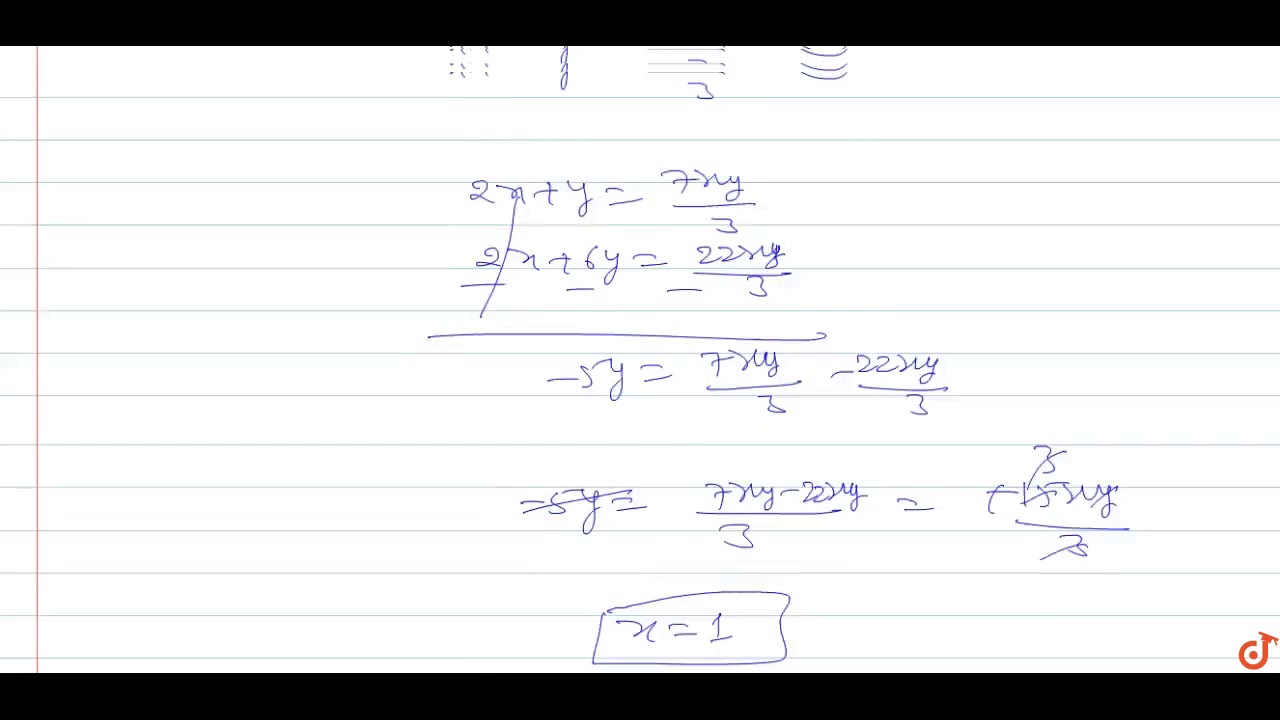 3
2x+y = 7xy/3
2x+6y = 22xy/3
-5y = 7xy/3 - 22xy/3
-5y = 7xy-22xy/3 = -15xy/3
x=1